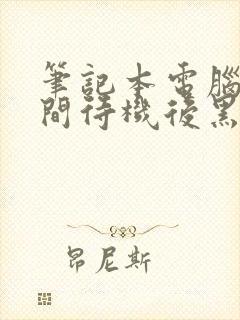 筆記本電腦
間待機後黑
昂尼斯